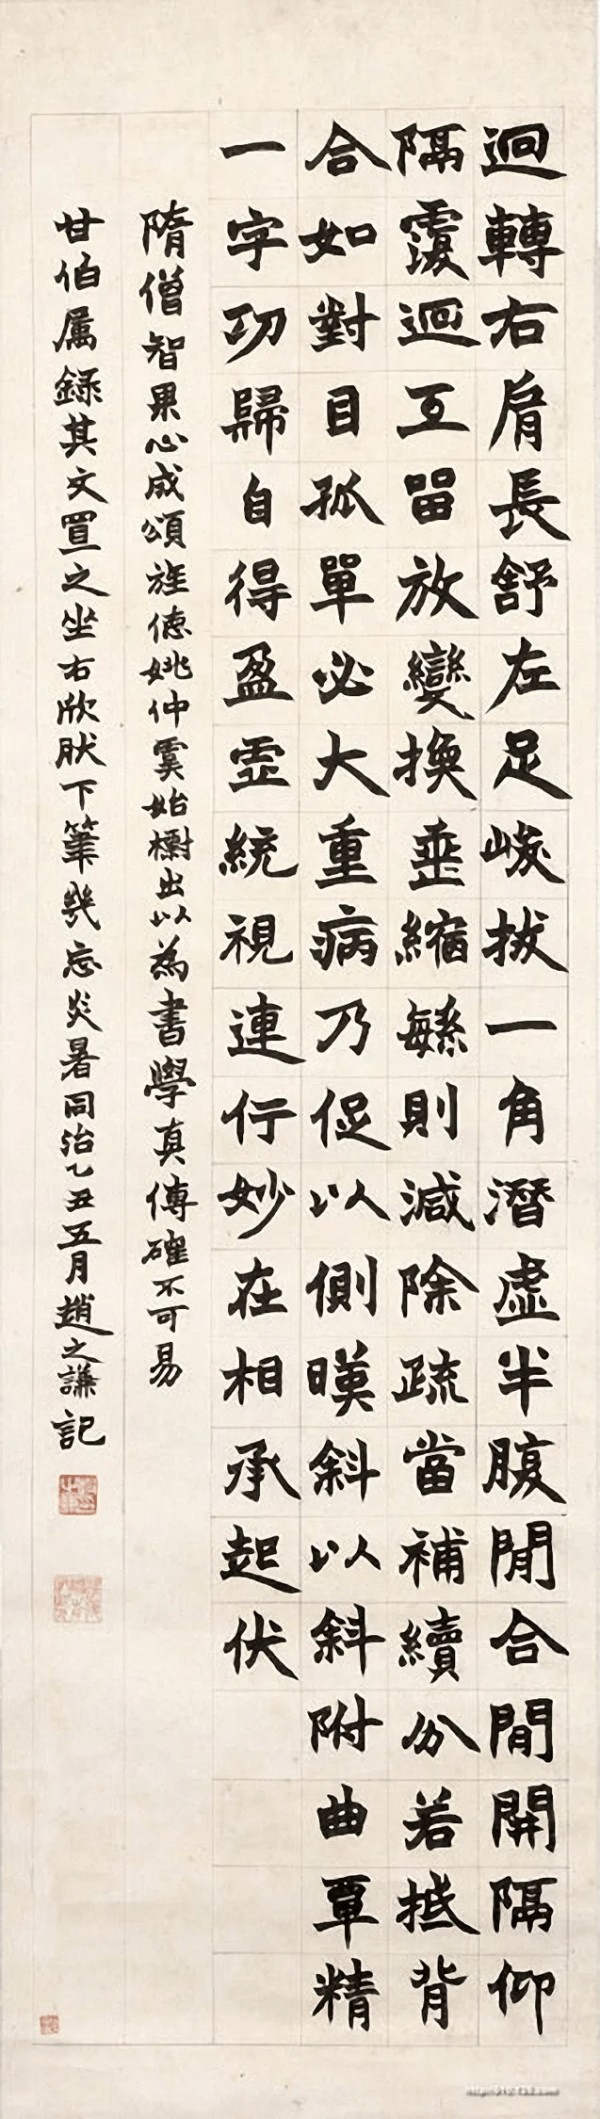 迴轉右肩長舒左足峻拔一角潛虛半腹閒合閒開隔仰
隔覆迴互留放變換垂縮繁則減除疏當補續分若抵背
合如對目孤單必大重病乃促以側暎斜以斜附曲覃精
一字功歸自得盈虛統視連行妙在相承起伏
隋僧智果心成頌旌德姚仲虞始出以為書學真傳確不可易
甘伯屬錄其文置之坐右欣肰下筆幾忘炎暑同治乙丑五月趙之謙記